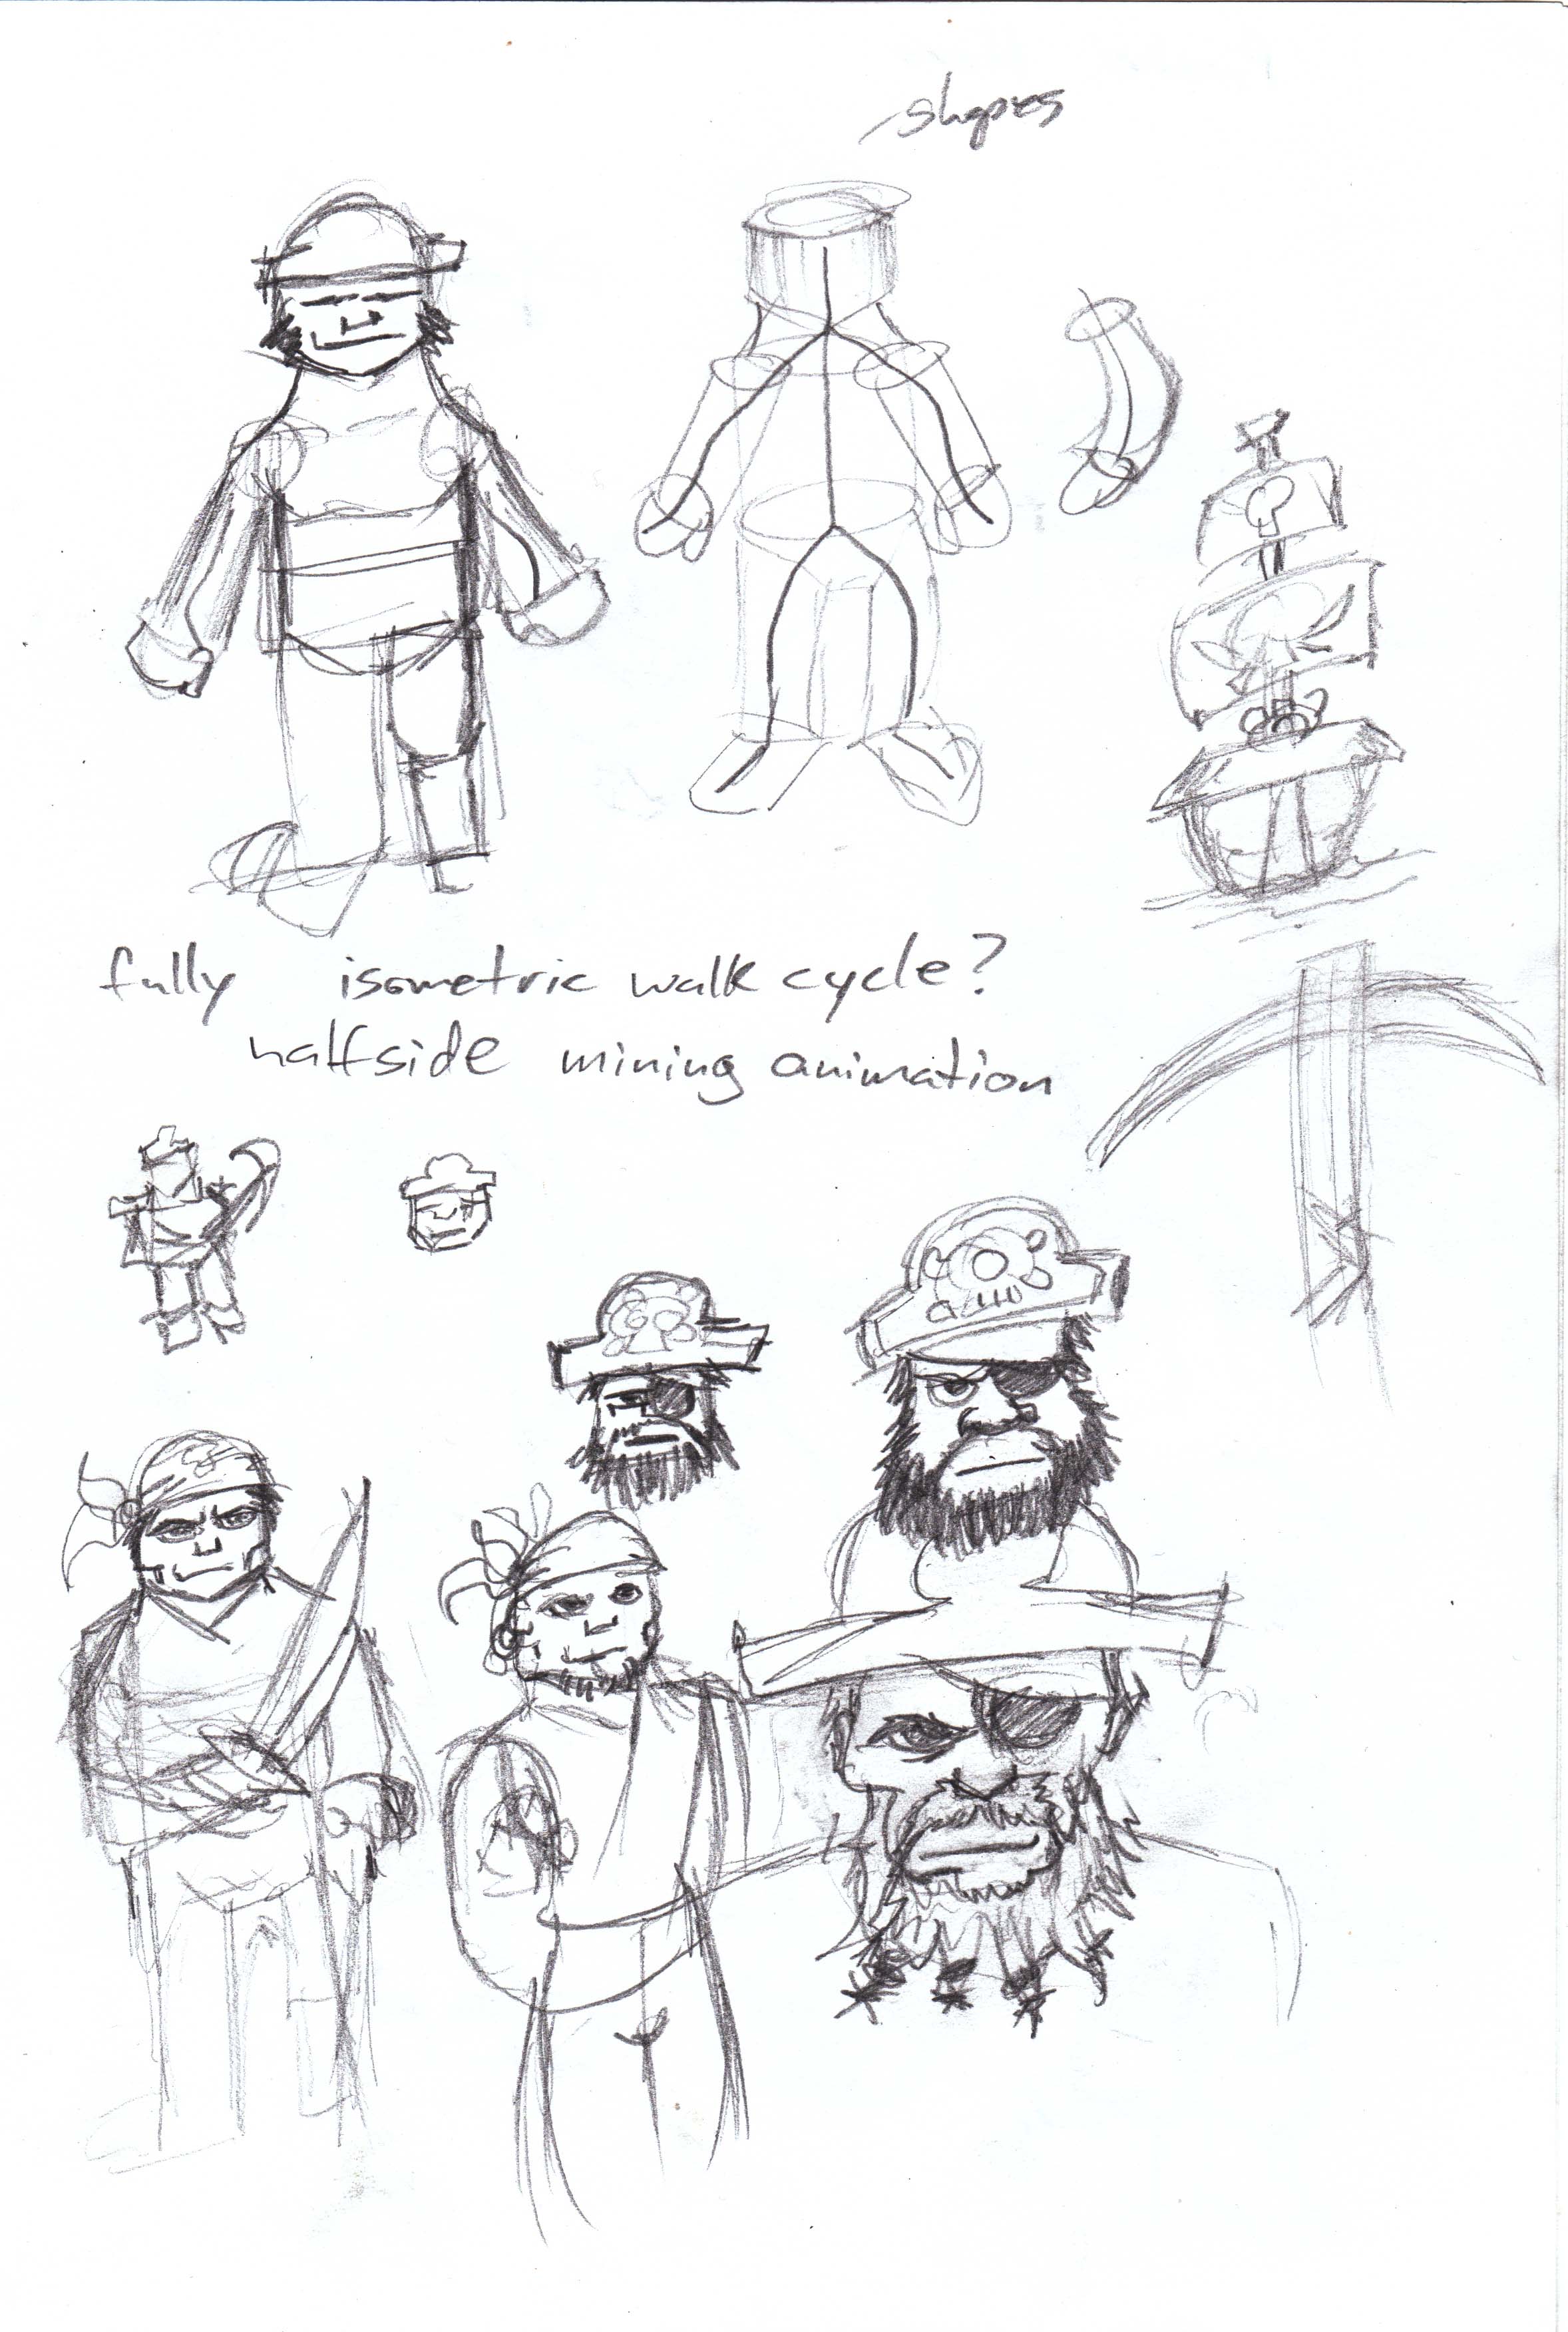 shapes
fully isometric walk cycle?
halfside mining animation